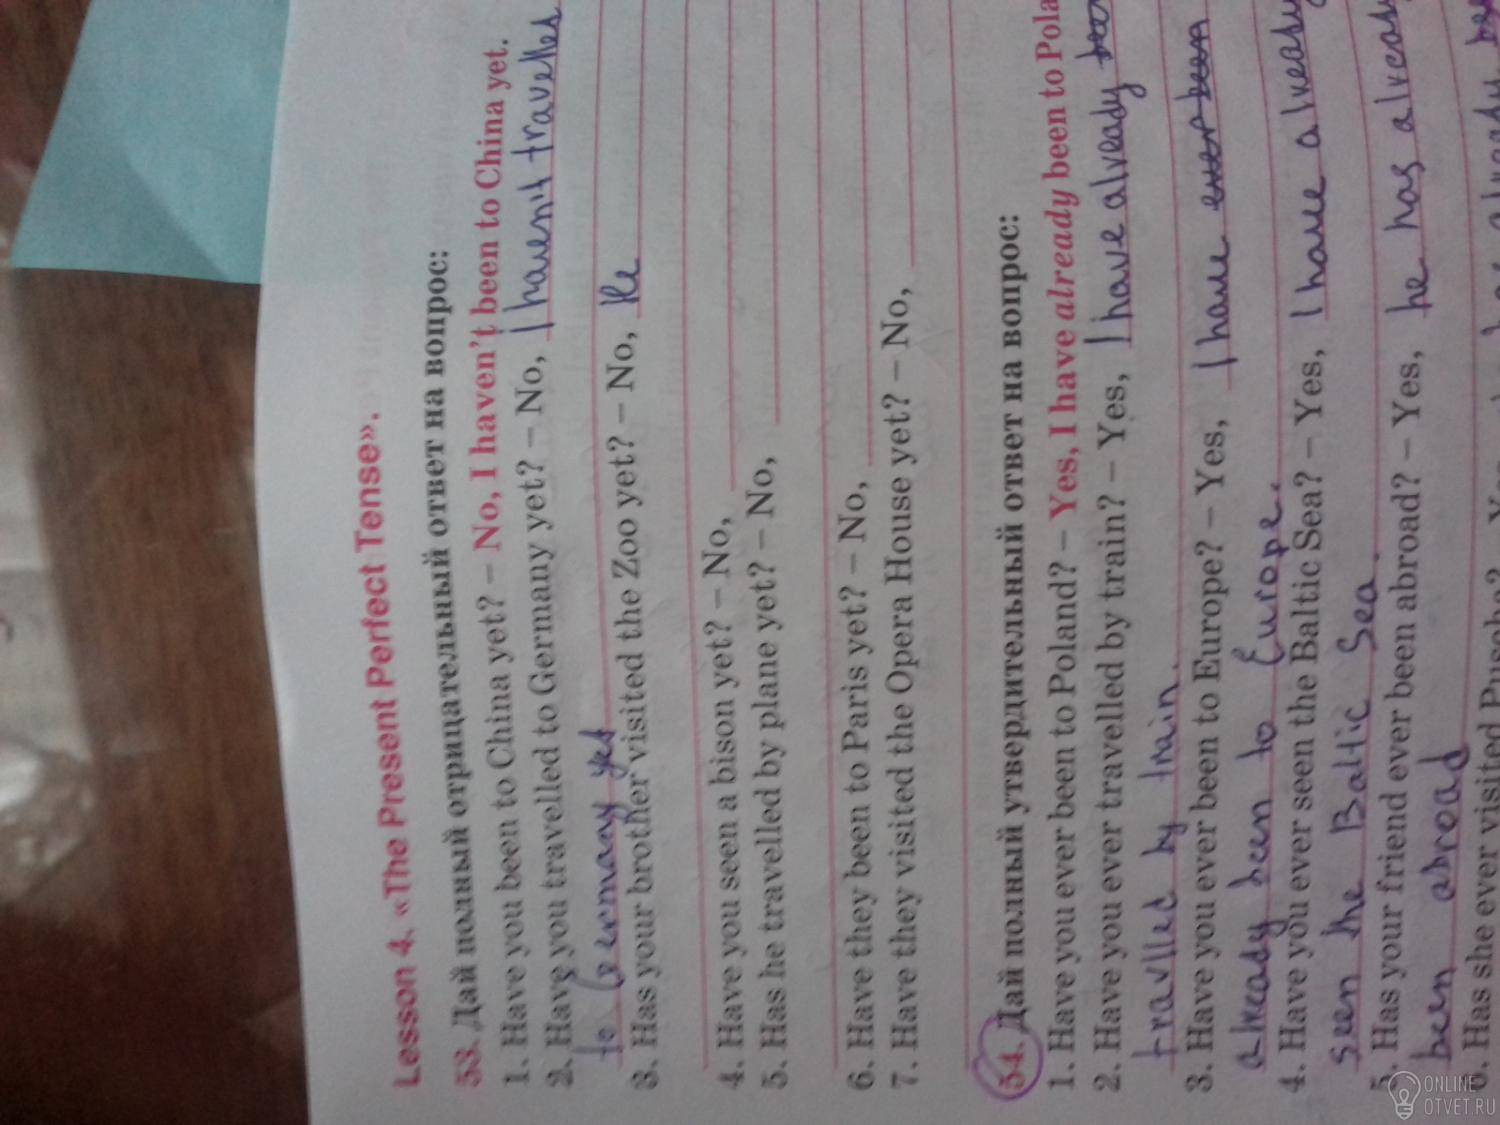 Lesson 4. «The Present Perfect Tense».
53. Дай полный отрицательный ответ на вопрос:
1. Have you been to China yet? – No, I haven't been to China yet.
2. Have you travelled to Germany yet? – No, I haven't travelled
to Germany yet
3. Has your brother visited the Zoo yet? – No, He
4. Have you seen a bison yet? – No,
5. Has he travelled by plane yet? – No,
6. Have they been to Paris yet? – No,
7. Have they visited the Opera House yet? – No,
54. Дай полный утвердительный ответ на вопрос:
1. Have you ever been to Poland? – Yes, I have already been to Pola
2. Have you ever travelled by train? – Yes, I have already
travlled by train.
3. Have you ever been to Europe? – Yes, I have ever been
already been to Europe.
4. Have you ever seen the Baltic Sea? – Yes, I have already
seen the Baltic Sea.
5. Has your friend ever been abroad? – Yes, he has already
been abroad
6. Has she ever visited
ONLINE
OTVET.RU